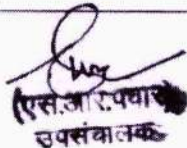 (एस.आर.पवार)
उपसंचालक